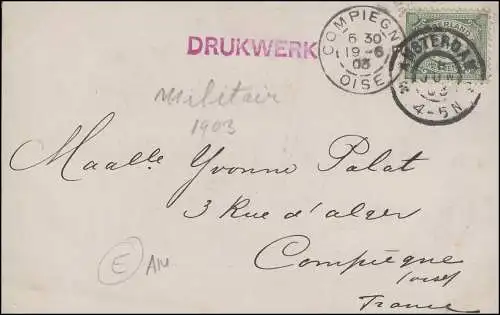 DRUKWERK
COMPIEGNE
6 30
19-6
03
OISE
NEDERLAND
AMSTERDAM
JUN
03
4-5N
Militair
1903
Maalle Yvonne Palat
3 Rue d'alger
Compiègne
(oise)
France
E